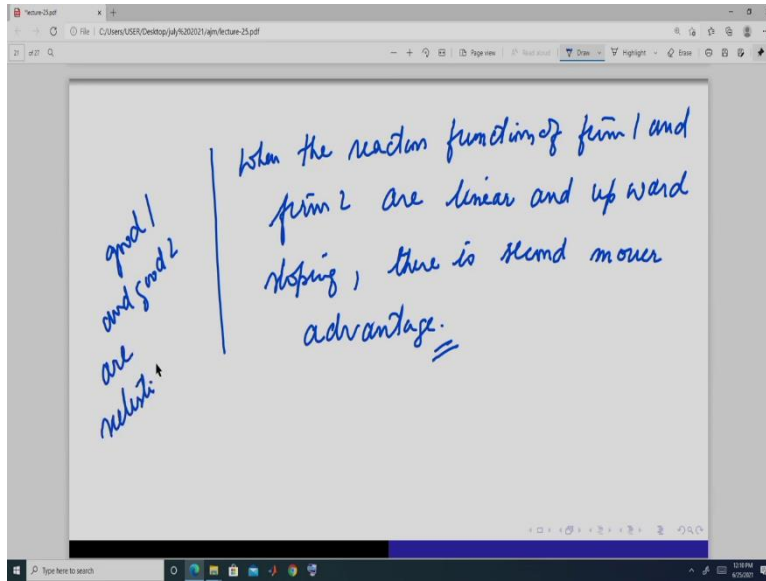 *lecture-25.pdf
File | C:/Users/USER/Desktop/july%202021/ajm/lecture-25.pdf
21 of 27
Page view
Read aloud
Draw
Highlight
Erase
When the reaction function of firm 1 and
firm 2 are linear and upward
sloping, there is second mover
advantage.
good 1
and good 2
are
substi
Type here to search
12:16 PM
6/25/2021